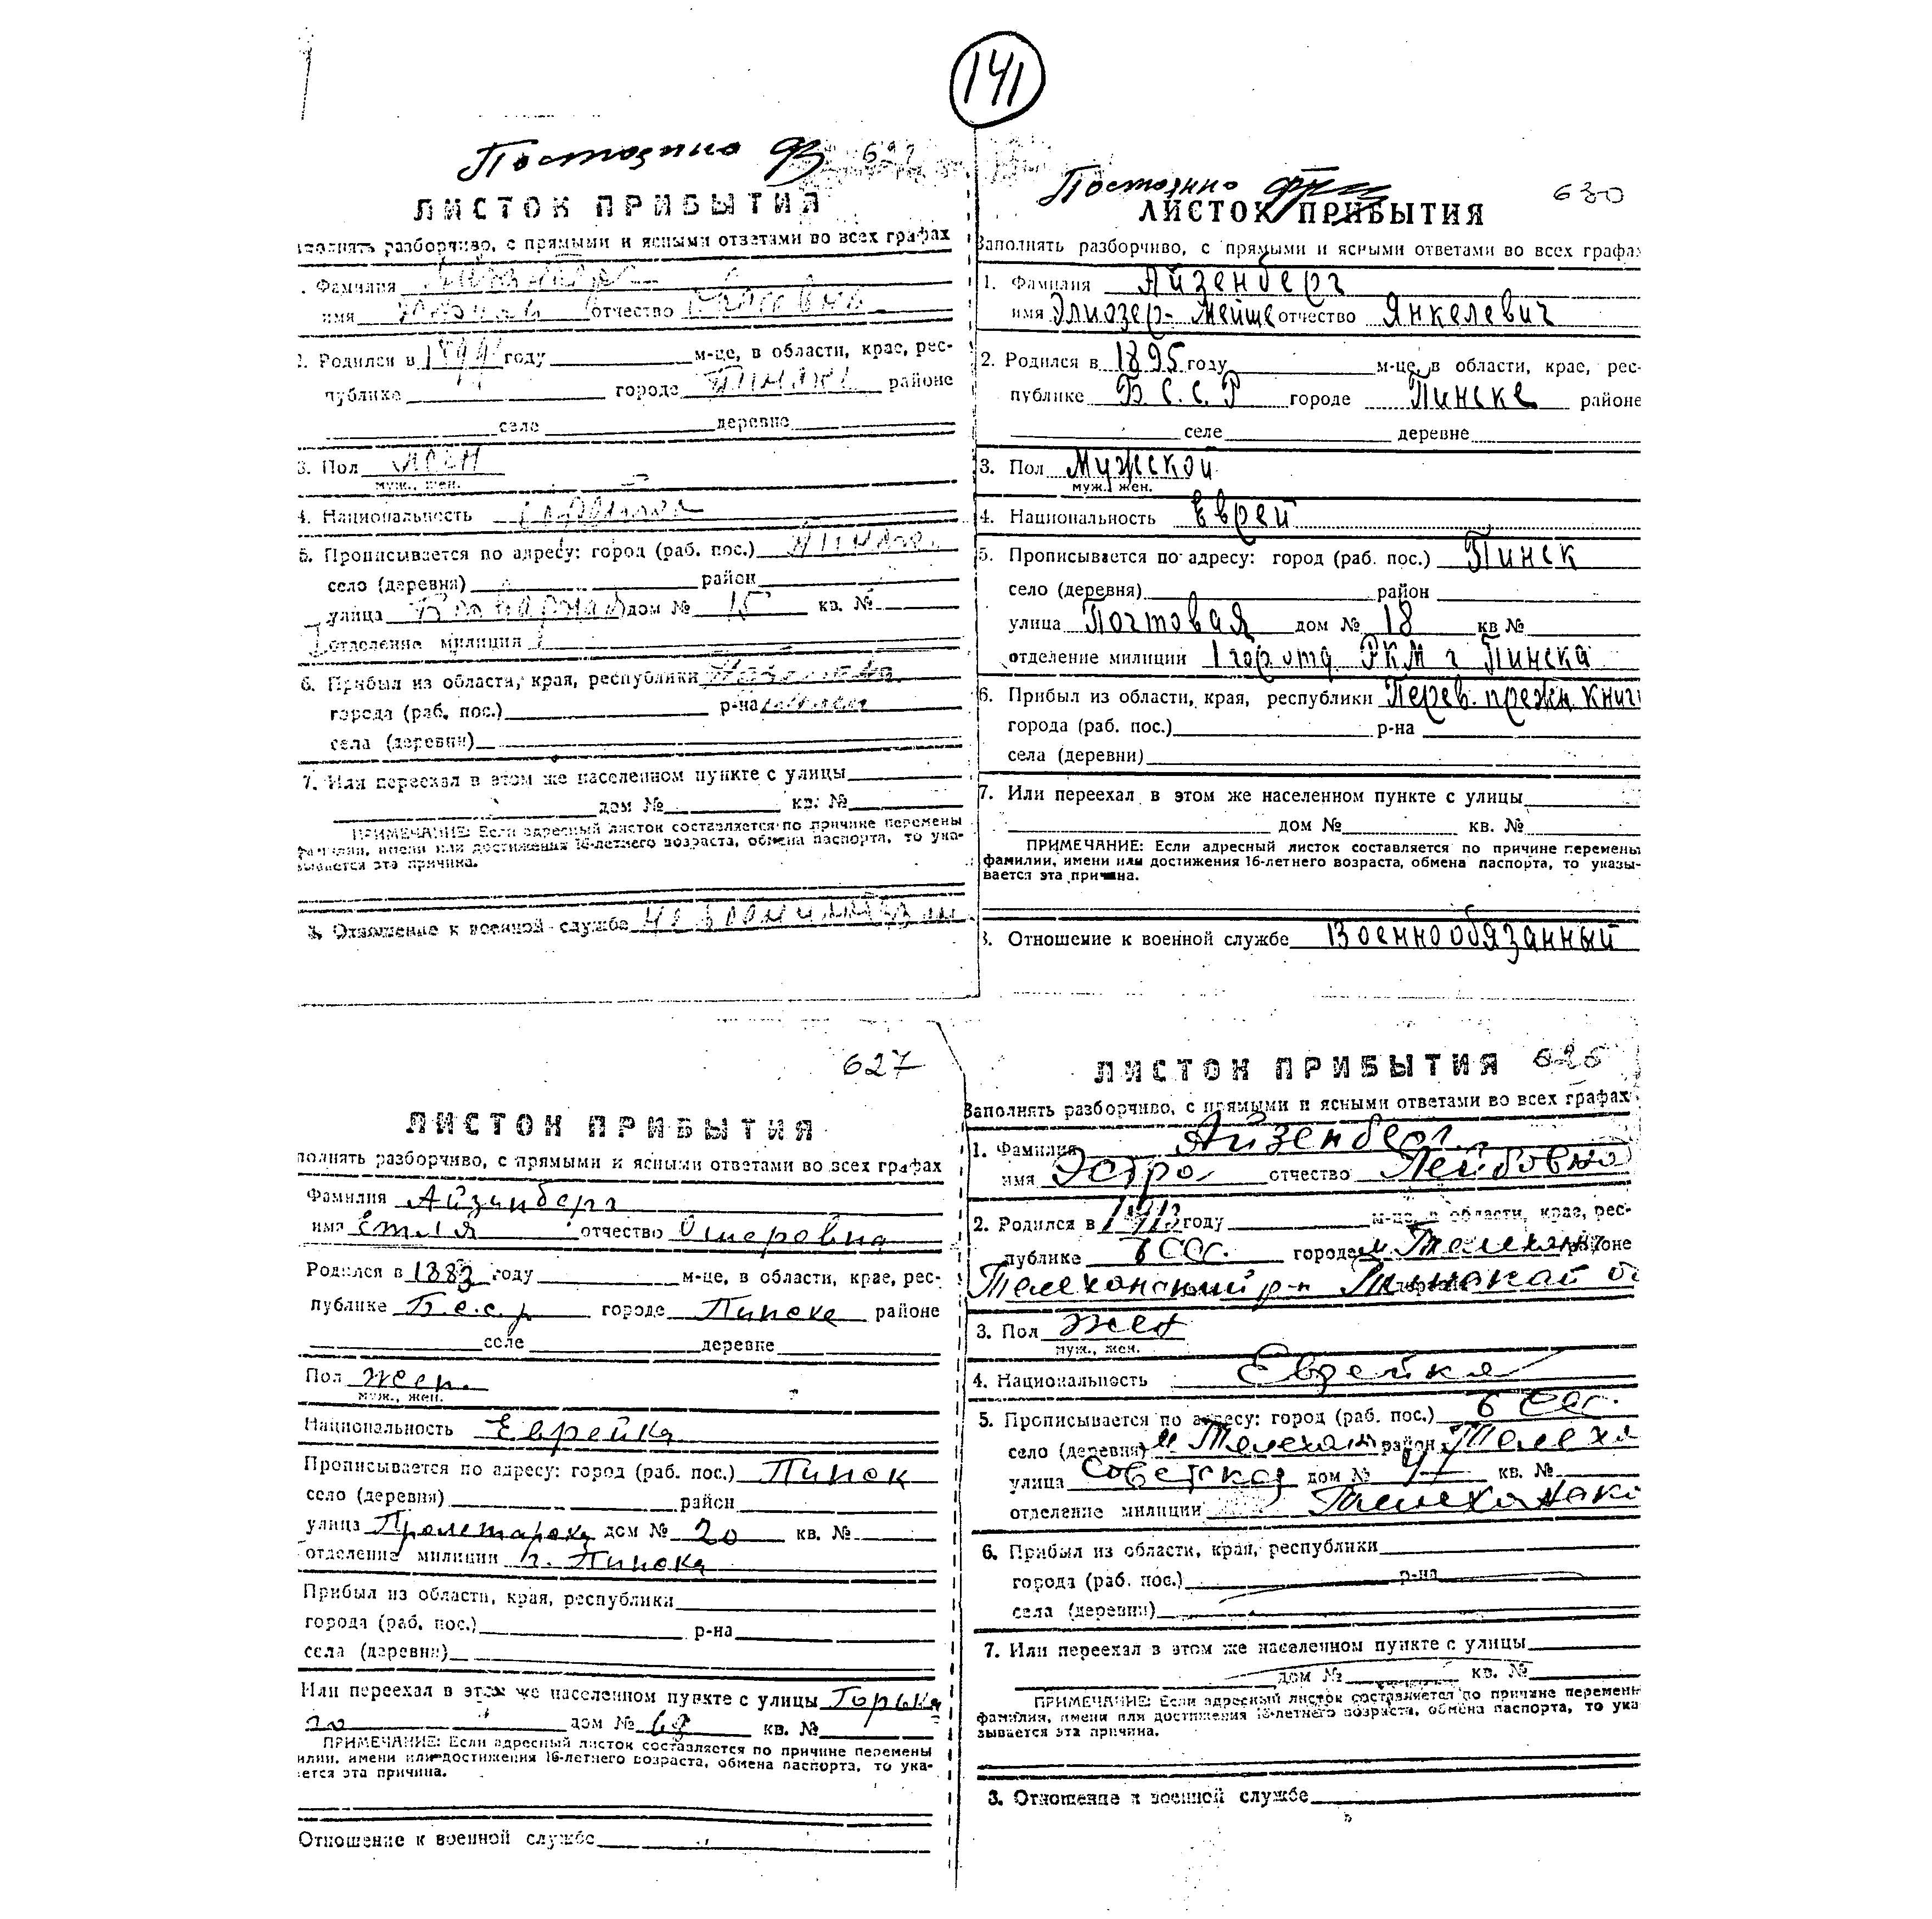 141
Постоянно
ЛИСТОК ПРИБЫТИЯ
разборчиво, с прямыми и ясными ответами во всех графах
Фамилия
имя отчество
Родился в году м-це, в области, крае, рес-
публике городе районе
селе деревне
3. Пол жен
муж., жен.
4. Национальность
5. Прописывается по адресу: город (раб. пос.)
село (деревня) район
улица дом № 15 кв. №
отделение милиции
6. Прибыл из области, края, республики
города (раб. пос.) р-на
села (деревни)
7. Или переехал в этом же населенном пункте с улицы
дом № кв. №
ПРИМЕЧАНИЕ: Если адресный листок составляется по причине перемены
фамилии, имени или достижения 16-летнего возраста, обмена паспорта, то ука-
зывается эта причина.
Отношение к военной службе
Постоянно 630
ЛИСТОК ПРИБЫТИЯ
Заполнять разборчиво, с прямыми и ясными ответами во всех графах
1. Фамилия Айзенберг
имя Элиозер-Мейше отчество Янкелевич
2. Родился в 1895 году м-це, в области, крае, рес-
публике Б.С.С.Р городе Пинске районе
селе деревне
3. Пол Мужской
муж. жен.
4. Национальность Еврей
5. Прописывается по адресу: город (раб. пос.) Пинск
село (деревня) район
улица Почтовая дом № 18 кв №
отделение милиции 1 гор отд. РКМ г Пинска
6. Прибыл из области, края, республики Перев. прежн. книги
города (раб. пос.) р-на
села (деревни)
7. Или переехал в этом же населенном пункте с улицы
дом № кв. №
ПРИМЕЧАНИЕ: Если адресный листок составляется по причине перемены
фамилии, имени или достижения 16-летнего возраста, обмена паспорта, то указы-
вается эта причина.
Отношение к военной службе Военнообязанный
627
ЛИСТОК ПРИБЫТИЯ
разборчиво, с прямыми и ясными ответами во всех графах
Фамилия Айзинберг
имя Етля отчество Ошеровна
Родился в 1883 году м-це, в области, крае, рес-
публике Б.с.с.р городе Пинске районе
селе деревне
Пол жен.
муж., жен.
Национальность Еврейка
Прописывается по адресу: город (раб. пос.) Пинск
село (деревня) район
улица дом № 20 кв. №
отделение милиции г. Пинска
Прибыл из области, края, республики
города (раб. пос.) р-на
села (деревни)
Или переехал в этом же населенном пункте с улицы Горько
го дом № кв. №
ПРИМЕЧАНИЕ: Если адресный листок составляется по причине перемены
имени или достижения 16-летнего возраста, обмена паспорта, то ука-
эта причина.
Отношение к военной службе
ЛИСТОК ПРИБЫТИЯ
Заполнять разборчиво, с прямыми и ясными ответами во всех графах
1. Фамилия Айзенберг
имя Эстра отчество Лейбовна
2. Родился в 1913 году м-це, в области, крае, рес-
публике БССР городе м. районе
Телеханский р-н Пинской
3. Пол жен
муж., жен.
4. Национальность Еврейка
5. Прописывается по адресу: город (раб. пос.) БССР
село (деревня) м. район
улица Советская дом № 47 кв. №
отделение милиции
6. Прибыл из области, края, республики
города (раб. пос.) р-на
села (деревни)
7. Или переехал в этом же населенном пункте с улицы
дом № кв. №
ПРИМЕЧАНИЕ: Если адресный листок составляется по причине перемены
фамилии, имени или достижения 16-летнего возраста, обмена паспорта, то ука
зывается эта причина.
Отношение к военной службе